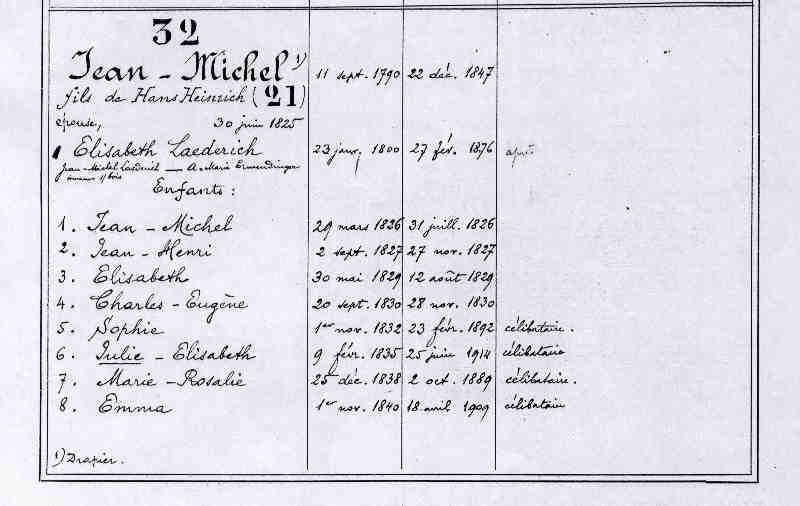 32
Jean - Michel 1) 11 sept. 1790 22 déc. 1847
fils de Hans Heinrich (21)
épouse, 30 juin 1825
Elisabeth Laederich 23 janv. 1800 27 fév. 1876
Jean-Michel Laederich — A. Marie Ermendinger
Enfants :
1. Jean - Michel 29 mars 1826 31 juill. 1826
2. Jean - Henri 2 sept. 1827 27 nov. 1827
3. Elisabeth 30 mai 1829 12 août 1829
4. Charles - Eugène 20 sept. 1830 28 nov. 1830
5. Sophie 1er nov. 1832 23 févr. 1892 célibataire.
6. Julie - Elisabeth 9 févr. 1835 25 juin 1914 célibataire
7. Marie - Rosalie 25 déc. 1838 2 oct. 1889 célibataire.
8. Emma 1er nov. 1840 18 avril 1909 célibataire
1) Drapier.